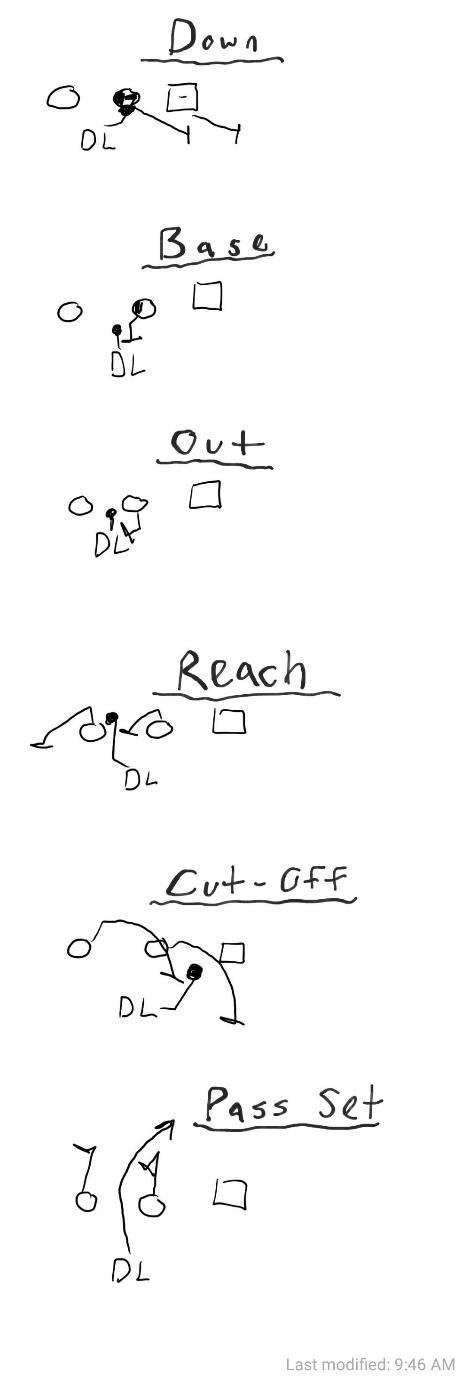 Down
DL
Base
DL
Out
DL
Reach
DL
Cut-Off
DL
Pass Set
DL
Last modified: 9:46 AM